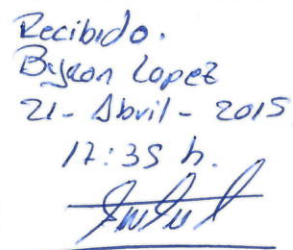 Recibido.
Byron Lopez
21- Abril - 2015
17:35 h.